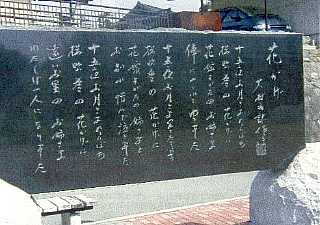 花かげ
大村主計作
十五夜お月さまひとりぼち
桜吹雪の花かげに
花嫁すがたのお姉さま
俥にゆられてゆきました
十五夜お月さま見てたでしょう
桜吹雪の花かげに
花嫁すがたの姉さまと
お別れ惜しんで泣きました
十五夜お月さまひとりぼち
桜吹雪の花かげに
遠いお里のお姉さま
わたしは一人になりました